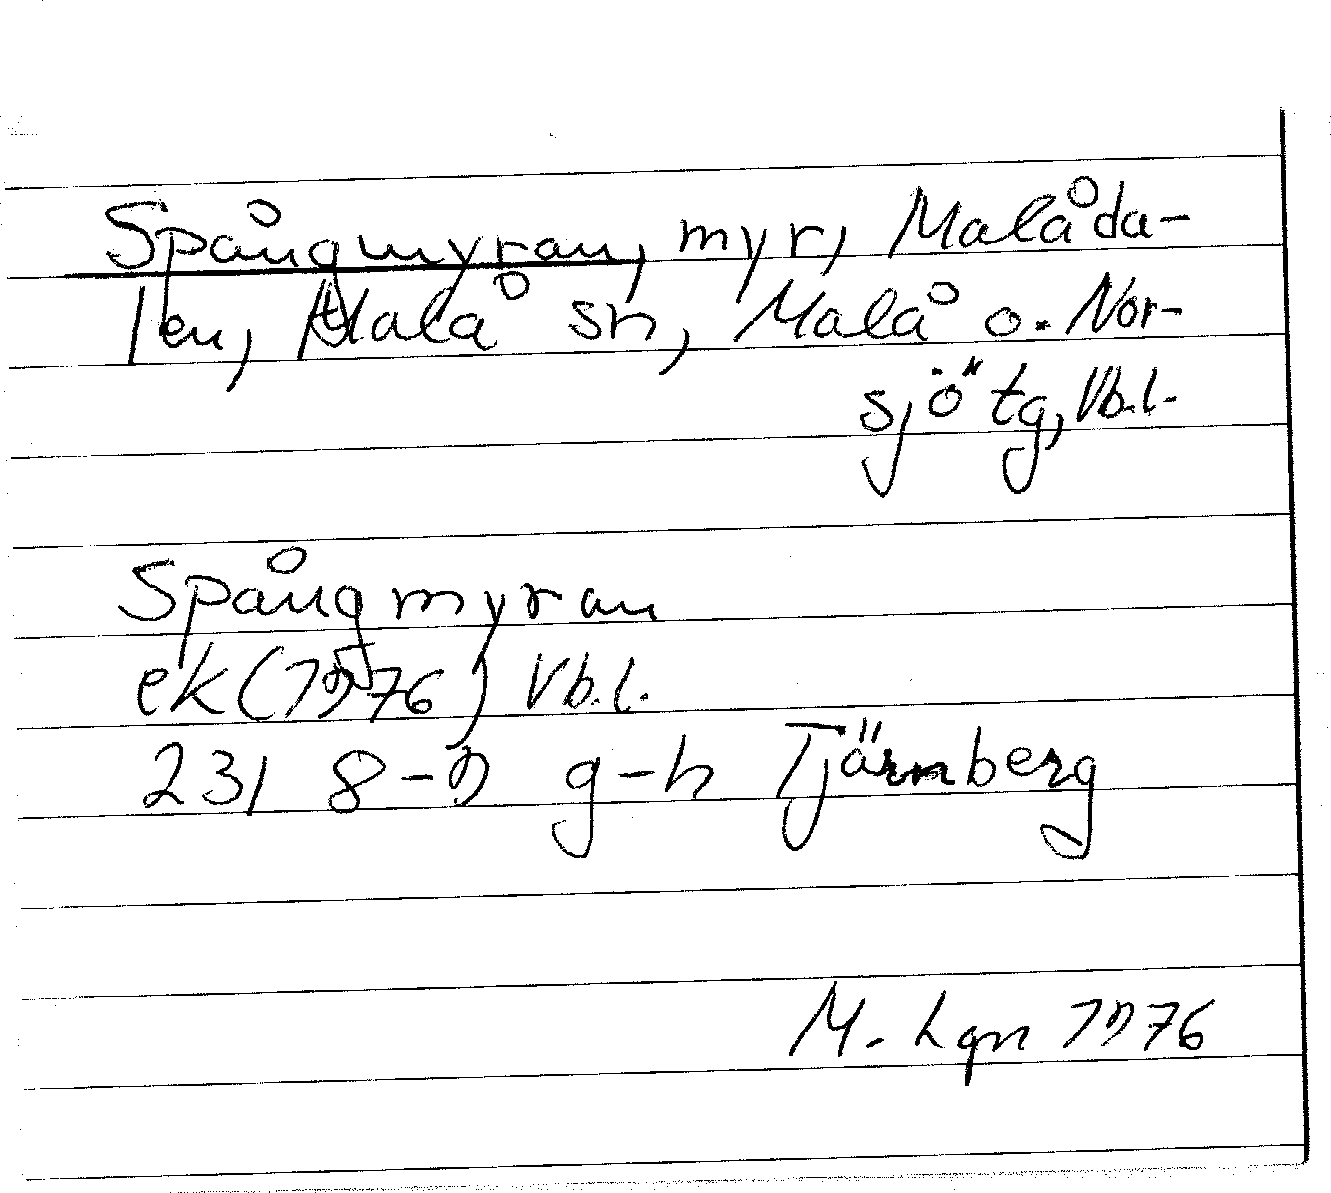 Spångmyran, myr, Malåda-
len, Malå sn, Malå o. Nor-
sjö tg, Vb.l.
Spångmyran
ek (1976) Vb.l.
23I 8-9 g-h Tjärnberg
M. Lgn 1976